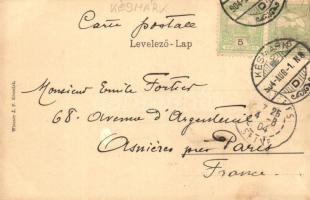 KÉSMÁRK
Carte postale
Levelező-Lap
5
KÉSMÁRK
Monsieur Emile Fortier
68. Avenue d'Argenteuil
Asnières près Paris
France.